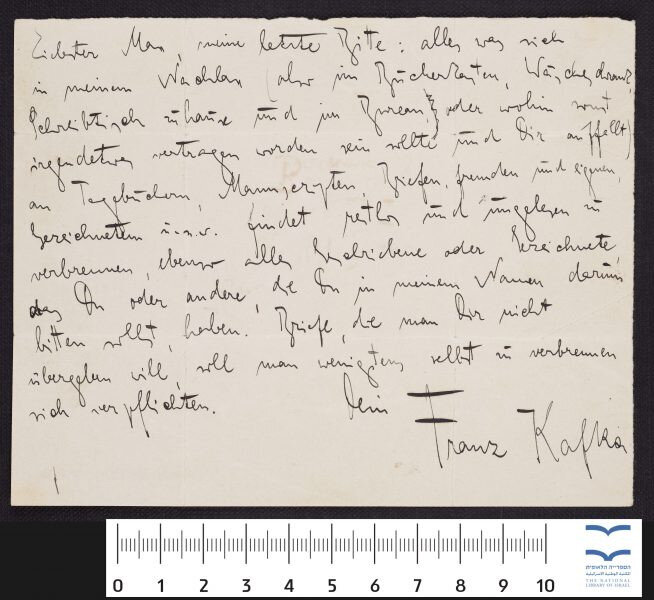 Liebster Max, meine letzte Bitte: alles was sich
in meinem Nachlass (also im Bücherkasten, Wäscheschrank,
Schreibtisch zuhause und im Bureau, oder wohin sonst
irgendetwas vertragen worden sein sollte und Dir auffällt)
an Tagebüchern, Manuscripten, Briefen, fremden und eignen,
Gezeichnetem u.s.w. findet restlos und ungelesen zu
verbrennen, ebenso alles Geschriebene oder Gezeichnete,
das Du oder andere, die Du in meinem Namen darum
bitten sollst, haben. Briefe, die man Dir nicht
übergeben will, soll man wenigstens selbst zu verbrennen
sich verpflichten.
Dein Franz Kafka
0 1 2 3 4 5 6 7 8 9 10
הספרייה הלאומית
THE NATIONAL
LIBRARY OF ISRAEL